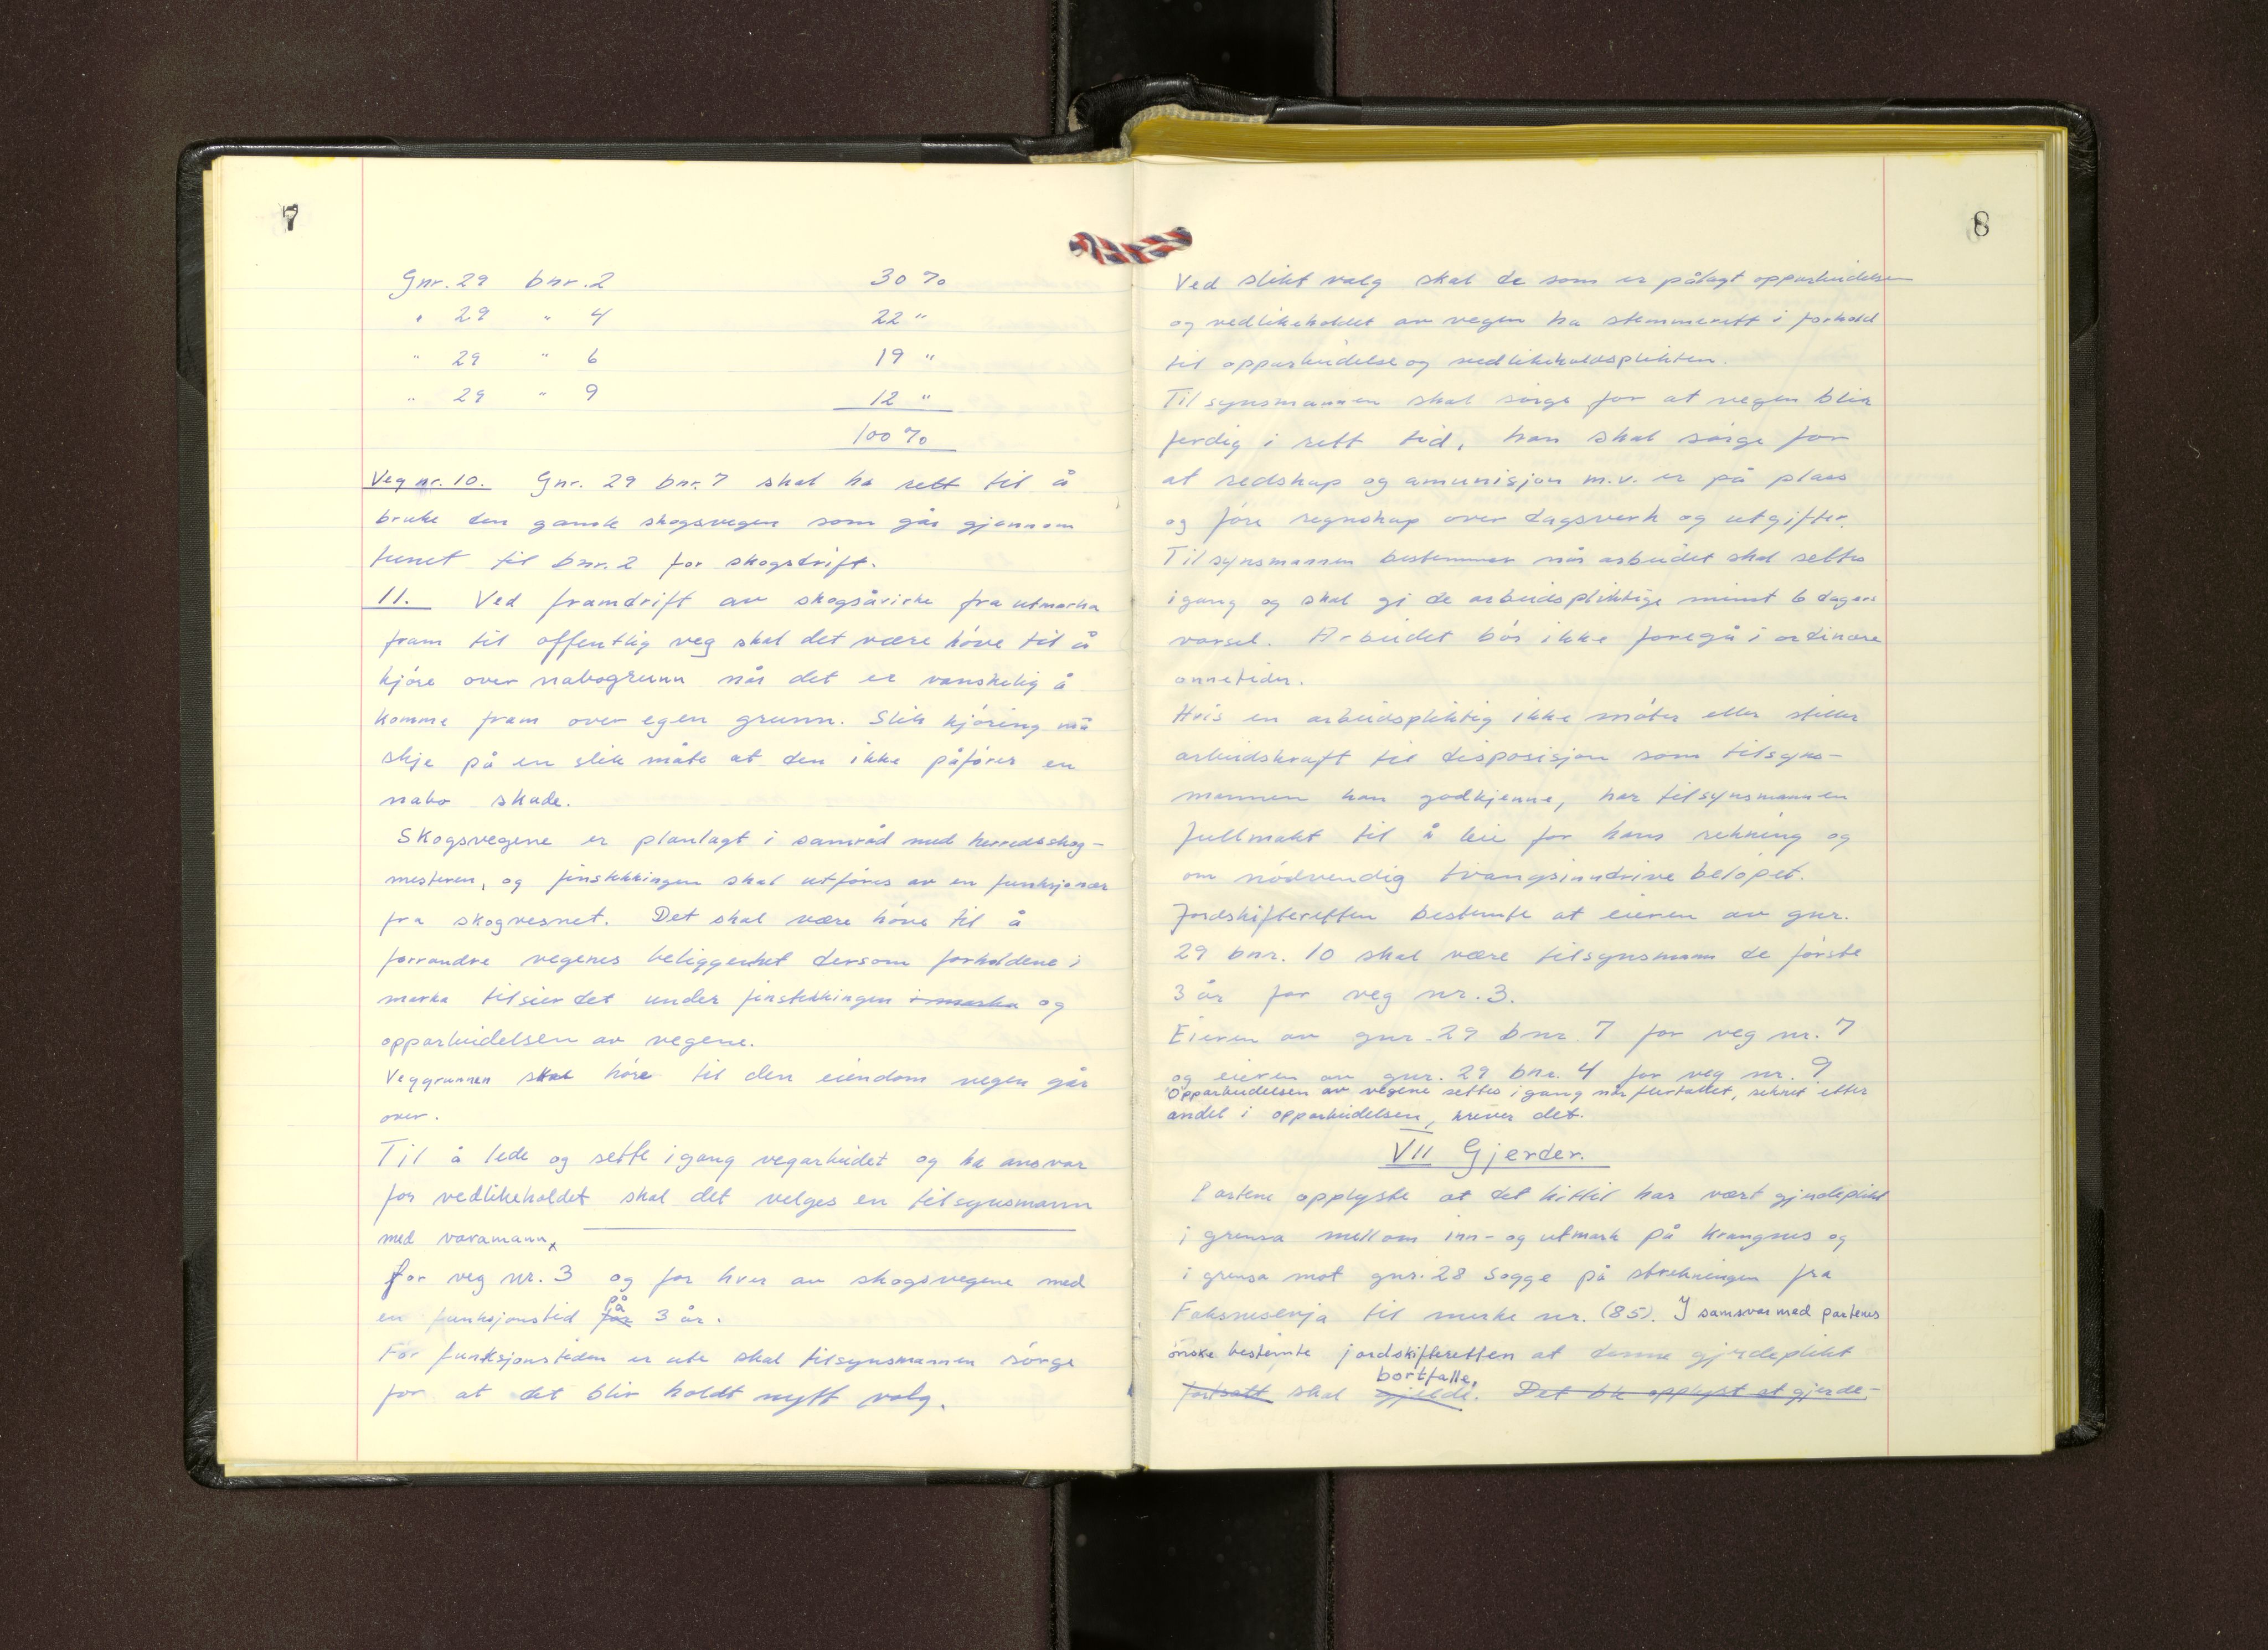 7
Gnr. 29 bnr. 2 30 %
" 29 " 4 22 "
" 29 " 6 19 "
" 29 " 9 12 "
100 %
Veg nr. 10. Gnr. 29 bnr. 7 skal ha rett til å
bruke den gamle skogsvegen som går gjennom
tunet til bnr. 2 for skogsdrift.
11. Ved framdrift av skogsåvirke fra utmarka
fram til offentlig veg skal det være høve til å
kjøre over nabogrunn når det er vanskelig å
komme fram over egen grunn. Slik kjøring må
skje på en slik måte at den ikke påfører en
nabo skade.
Skogsvegene er planlagt i samråd med herredsskog-
mesteren, og finstikkingen skal utføres av en funksjonær
fra skogvesnet. Det skal være høve til å
forrandre vegenes beliggenhet dersom forholdene i
marka tilsier det under finstikkingen i marka og
opparbeidelsen av vegene.
Veggrunnen skal høre til den eiendom vegen går
over.
Til å lede og sette igang vegarbeidet og ha ansvar
for vedlikeholdet skal det velges en tilsynsmann
med varamann x
for veg nr. 3 og for hver av skogsvegene med
på
en funksjonstid for 3 år.
Før funksjonstiden er ute skal tilsynsmannen sørge
for at det blir holdt nytt valg.
8
Ved slikt valg skal de som er pålagt opparbeidelsen
og vedlikeholdet av vegen ha stemmerett i forhold
til opparbeidelse og vedlikeholdsplikten.
Tilsynsmannen skal sørge for at vegen blir
ferdig i rett tid, han skal sørge for
at redskap og amunisjon m.v. er på plass
og føre regnskap over dagsverk og utgifter.
Tilsynsmannen bestemmer når arbeidet skal settes
igang og skal gi de arbeidspliktige minst 6 dagers
varsel. Arbeidet bør ikke foregå i ordinære
onnetider.
Hvis en arbeidspliktig ikke møter eller stiller
arbeidskraft til disposisjon som tilsyns-
mannen kan godkjenne, har tilsynsmannen
fullmakt til å leie for hans rekning og
om nødvendig tvangsinndrive beløpet.
Jordskifteretten bestemte at eieren av gnr.
29 bnr. 10 skal være tilsynsmann de første
3 år for veg nr. 3.
Eieren av gnr. 29 bnr. 7 for veg nr. 7
og eieren av gnr. 29 bnr. 4 for veg nr. 9
Opparbeidelsen av vegene settes igang når flertallet, reknet etter
andel i opparbeidelsen, krever det.
VII Gjerder.
Partene opplyste at det hittil har vært gjerdeplikt
i grensa mellom inn- og utmark på Krangnes og
i grensa mot gnr. 28 Sogge på strekningen fra
til merke nr. (85). I samsvar med partenes
ønske bestemte jordskifteretten at denne gjerdeplikt
bortfalle.
fortsatt skal gjelde. Det ble opplyst at gjerde-